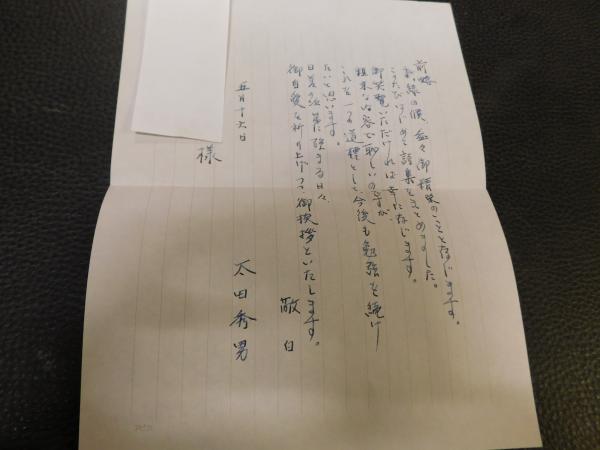 前略
新緑の候 益々御精栄のことと存じます。
このたび はじめて 詩集をまとめました。
御笑覧いただければ幸に存じます。
粗末な内容で恥しいのですが
これを一つの道標として今後も勉強を続け
たいと思います。
日差の次第に強まる日々、
御自愛を祈り上げつつ御挨拶といたします。
敬白
五月十六日
太田秀男
様